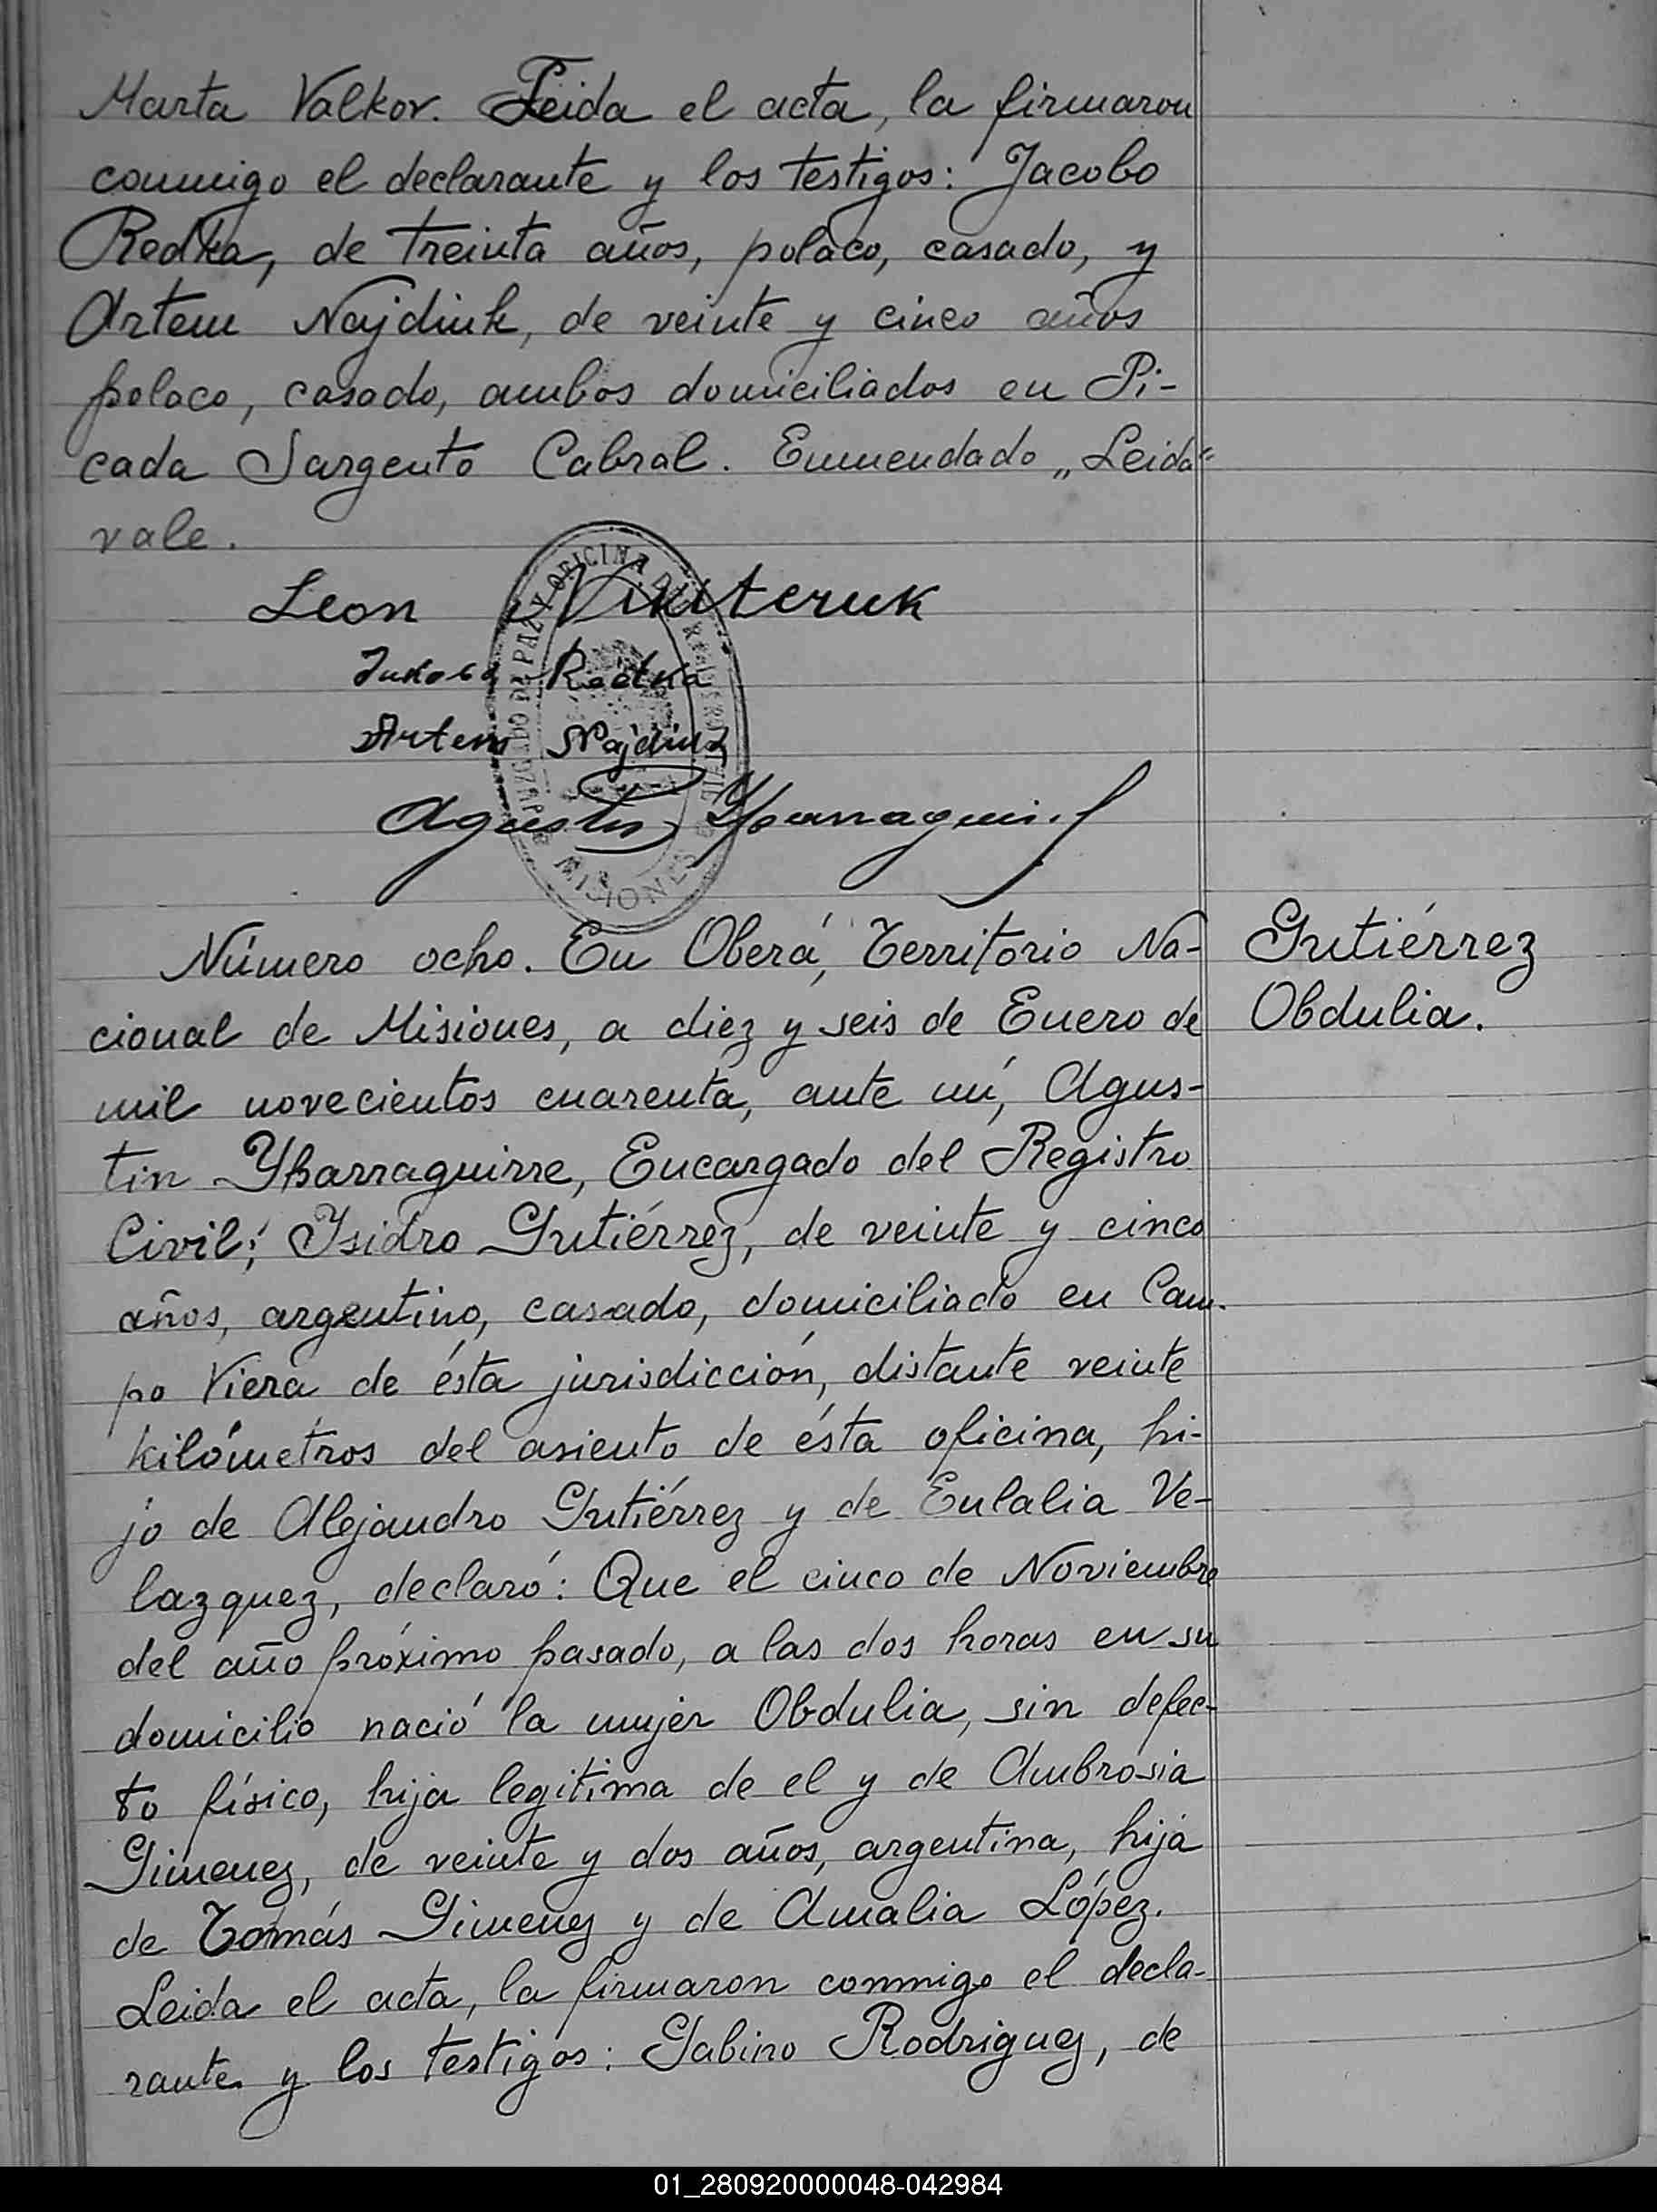 Marta Valkov. Leida el acta, la firmaron
conmigo el declarante y los testigos: Jacobo
Redka, de treinta años, polaco, casado, y
Artem Najdiuk, de veinte y cinco años
polaco, casado, ambos domiciliados en Pi-
cada Sargento Cabral. Enmendado „Leida"
vale.
Leon
Redka
Artem Najdiuk
Agustin Ybarraguirre
OFICINA
MISIONES
Número ocho. En Oberá, Territorio Na-
cional de Misiones, a diez y seis de Enero de
mil novecientos cuarenta, ante mí, Agus-
tin Ybarraguirre, Encargado del Registro
Civil; Ysidro Gutiérrez, de veinte y cinco
años, argentino, casado, domiciliado en Cam-
po Viera de ésta jurisdicción, distante veinte
kilómetros del asiento de ésta oficina, hi-
jo de Alejandro Gutiérrez y de Eulalia Ve-
lazquez, declaró: Que el cinco de Noviembre
del año próximo pasado, a las dos horas en su
domicilio nació la mujer Obdulia, sin defec-
to físico, hija legitima de el y de Ambrosia
Gimenez, de veinte y dos años, argentina, hija
de Tomás Gimenez y de Amalia López.
Leida el acta, la firmaron conmigo el decla-
rante y los testigos: Gabino Rodriguez, de
Gutiérrez
Obdulia.
01_280920000048-042984